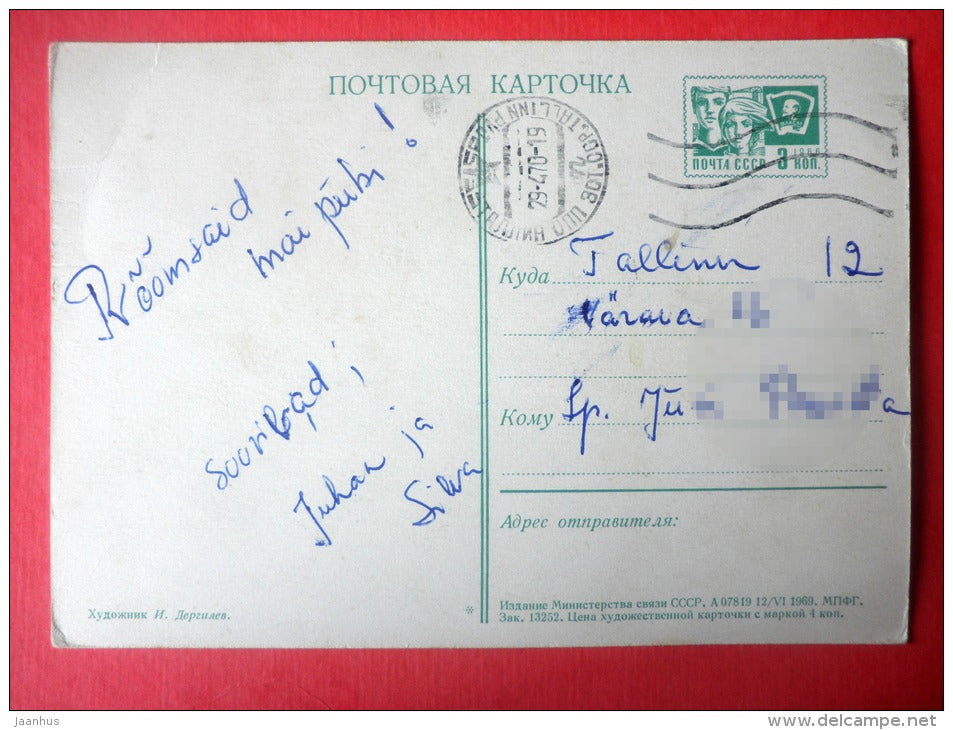 ПОЧТОВАЯ КАРТОЧКА
1966
ПОЧТА СССР 3 КОП.
29-470-19
Rõõmsaid
mai pühi!
soovivad;
Juhan ja
Silva
Куда Tallinn 12
Värava
Кому Sp. Jü
Адрес отправителя:
Художник И. Дергилев.
Издание Министерства связи СССР. А 07819 12/VI 1969. МПФГ.
Зак. 13252. Цена художественной карточки с маркой 4 коп.
Jaanhus
www.delcampe.net